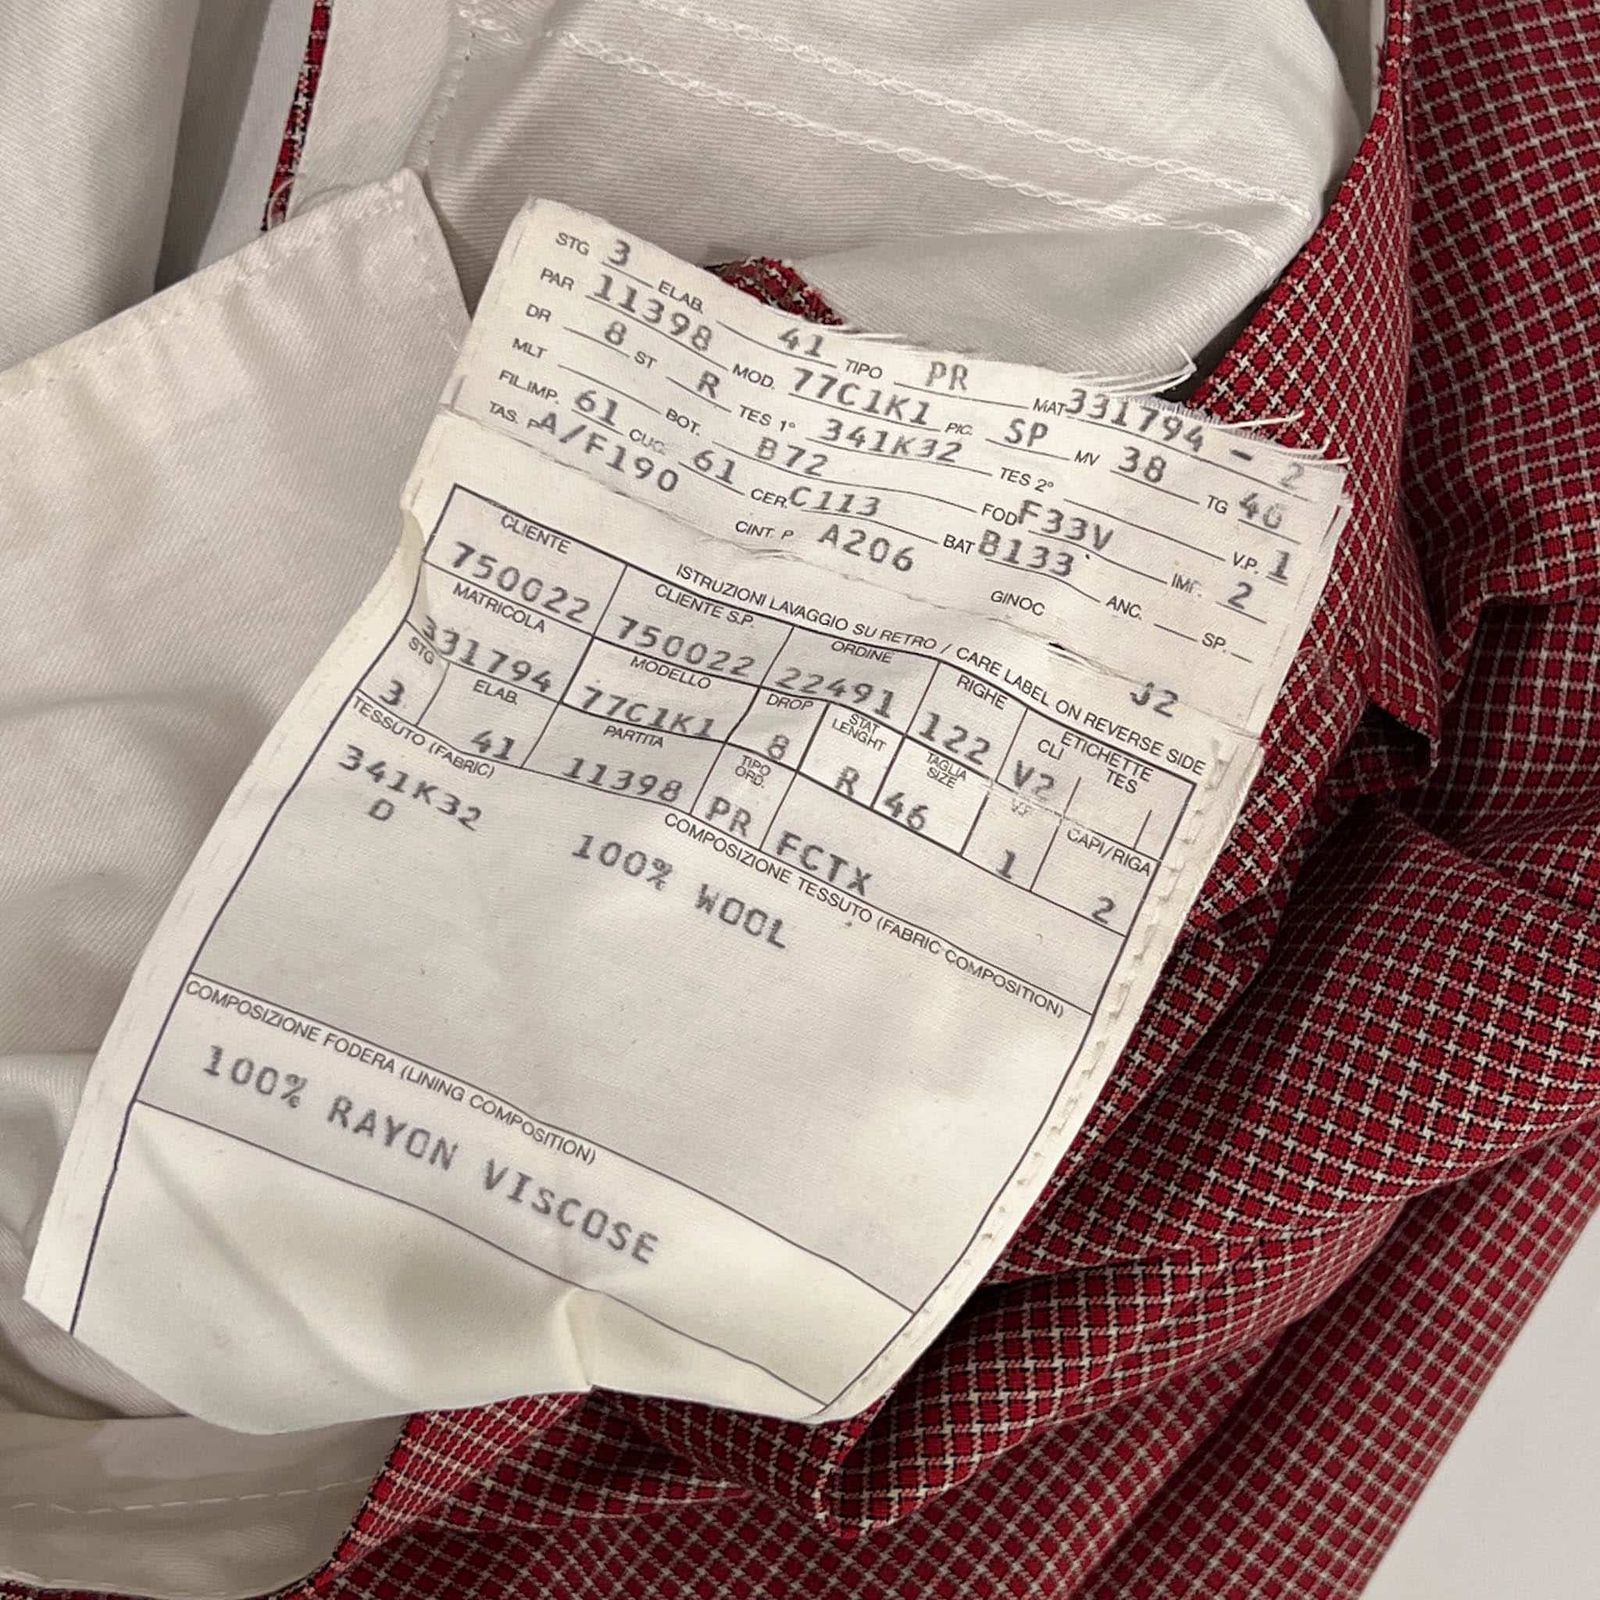 STG 3 ELAB. 41 TIPO PR MAT 331794 - 2
PAR 11398 MOD. 77C1K1 PIC. SP MV 38 TG 40
DR 8 ST R TES 1° 341K32 TES 2° V.P. 1
MLT BOT. B72 FOD F33V IMP. 2
FIL.IMP. 61 CUC. 61 CER. C113 BAT B133 ANC. SP.
TAS. P. A/F190 CINT. P A206 GINOC
J2
ISTRUZIONI LAVAGGIO SU RETRO / CARE LABEL ON REVERSE SIDE
CLIENTE CLIENTE S.P. ORDINE RIGHE ETICHETTE
CLI TES
750022 750022 22491 122 V2
MATRICOLA MODELLO DROP STAT LENGHT TAGLIA SIZE CAPI/RIGA
331794 77C1K1 8 R 46 1 2
STG ELAB. PARTITA TIPO ORD.
3 41 11398 PR FCTX
TESSUTO (FABRIC) COMPOSIZIONE TESSUTO (FABRIC COMPOSITION)
341K32 100% WOOL
D
COMPOSIZIONE FODERA (LINING COMPOSITION)
100% RAYON VISCOSE